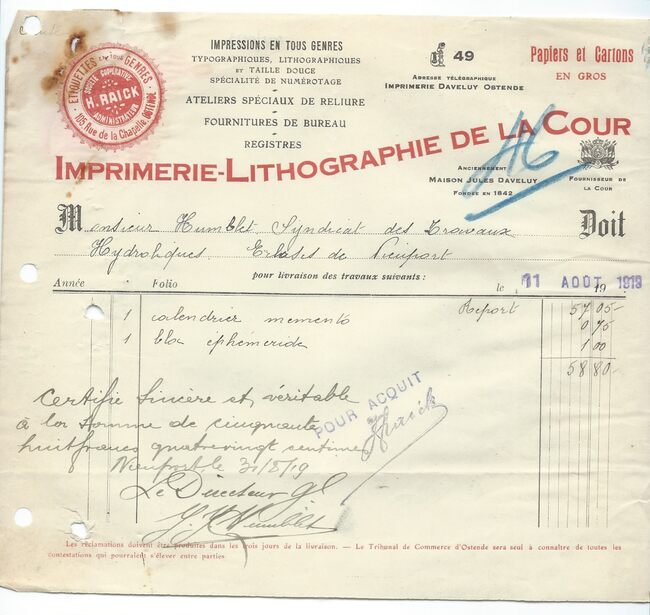 IMPRESSIONS EN TOUS GENRES
TYPOGRAPHIQUES, LITHOGRAPHIQUES
ET TAILLE DOUCE
SPÉCIALITÉ DE NUMÉROTAGE
ATELIERS SPÉCIAUX DE RELIURE
FOURNITURES DE BUREAU
REGISTRES
ETIQUETTES EN TOUS GENRES
SOCIÉTÉ COOPÉRATIVE
H. RAICK
ADMINISTRATEUR
105 Rue de la Chapelle, OSTENDE
49
ADRESSE TÉLÉGRAPHIQUE
IMPRIMERIE DAVELUY OSTENDE
Papiers et Cartons
EN GROS
IMPRIMERIE-LITHOGRAPHIE DE LA COUR
46
ANCIENNEMENT
MAISON JULES DAVELUY
FONDÉE EN 1842
FOURNISSEUR DE
LA COUR
Monsieur Humblet, Syndicat des Travaux Doit
Hydroliques Ecluses de Nieuport
pour livraison des travaux suivants :
Année Folio le 11 AOÛT 1919 19
Report 57 05-
1 calendrier memento 0 75
1 bloc éphéméride 1 00
58 80-
Certifié sincère et véritable
à la somme de cinquante
huit francs quatrevingt centimes
POUR ACQUIT
HRaick
Nieuport le 31/8/19
Le Directeur gl
Humblet
Les réclamations doivent être produites dans les trois jours de la livraison. — Le Tribunal de Commerce d'Ostende sera seul à connaître de toutes les
contestations qui pourraient s'élever entre parties